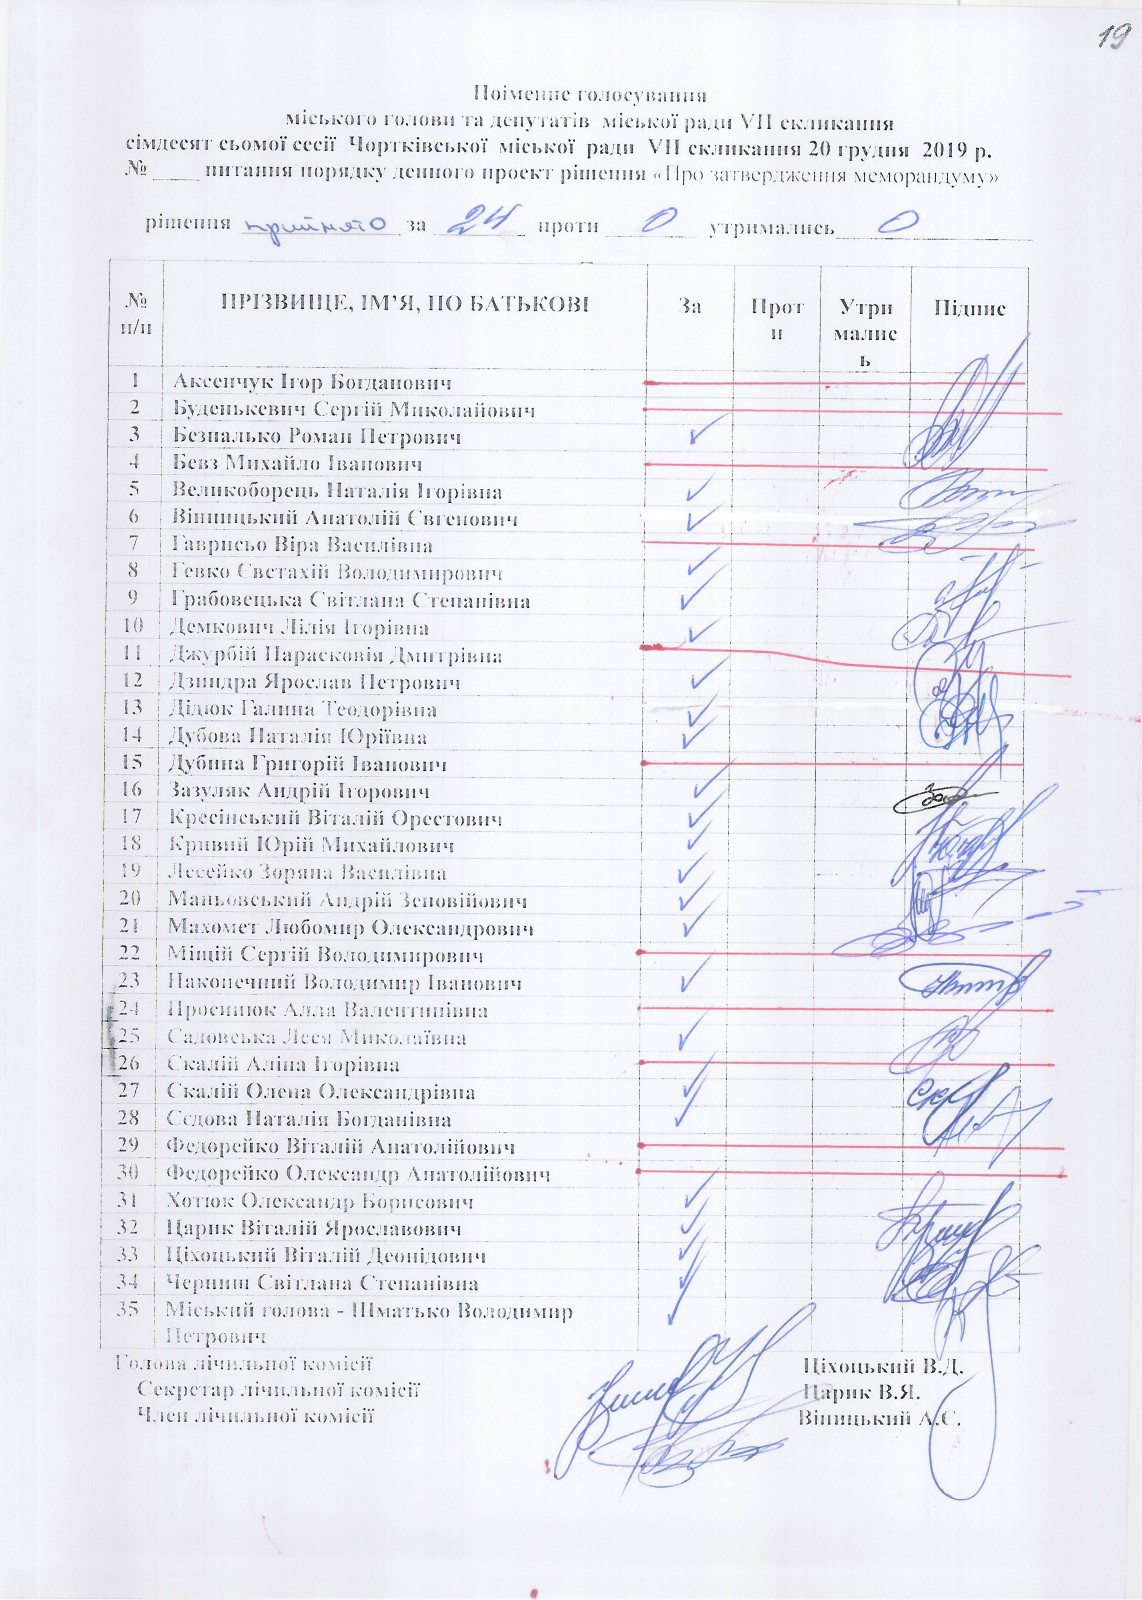 19
Поіменне голосування
міського голови та депутатів міської ради VII скликання
сімдесят сьомої сесії Чортківської міської ради VII скликання 20 грудня 2019 р.
№ ____ питання порядку денного проект рішення «Про затвердження меморандуму»
рішення прийнято за 24 проти 0 утримались 0
№ п/п ПРІЗВИЩЕ, ІМ’Я, ПО БАТЬКОВІ За Проти Утрималисьь Підпис
1 Аксенчук Ігор Богданович
2 Буденькевич Сергій Миколайович
3 Безпалько Роман Петрович ✓
4 Бевз Михайло Іванович
5 Великоборець Наталія Ігорівна ✓
6 Вінницький Анатолій Євгенович ✓
7 Гаврисьо Віра Василівна
8 Гевко Євстахій Володимирович ✓
9 Грабовецька Світлана Степанівна ✓
10 Демкович Лілія Ігорівна ✓
11 Джурбій Парасковія Дмитрівна
12 Дзиндра Ярослав Петрович ✓
13 Дідюк Галина Теодорівна ✓
14 Дубова Наталія Юріївна ✓
15 Дубина Григорій Іванович
16 Зазуляк Андрій Ігорович ✓
17 Кресінський Віталій Орестович ✓
18 Кривий Юрій Михайлович ✓
19 Лесейко Зоряна Василівна ✓
20 Маньовський Андрій Зеновійович ✓
21 Махомет Любомир Олександрович ✓
22 Міщій Сергій Володимирович
23 Наконечний Володимир Іванович ✓
24 Просинюк Алла Валентинівна
25 Садовська Леся Миколаївна ✓
26 Скалій Аліна Ігорівна
27 Скалій Олена Олександрівна ✓
28 Сєдова Наталія Богданівна ✓
29 Федорейко Віталій Анатолійович
30 Федорейко Олександр Анатолійович
31 Хотюк Олександр Борисович ✓
32 Царик Віталій Ярославович ✓
33 Ціхоцький Віталій Деонідович ✓
34 Черпиш Світлана Степанівна ✓
35 Міський голова - Шматько Володимир ✓
Петрович
Голова лічильної комісії Ціхоцький В.Д.
Секретар лічильної комісії Царик В.Я.
Член лічильної комісії Віницький А.Є.